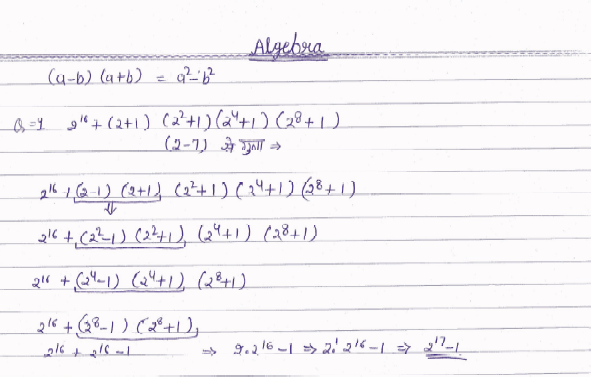 Algebra
(a-b) (a+b) = a²-b²
Q=1 2¹⁶ + (2+1) (2²+1) (2⁴+1) (2⁸+1)
(2-1) से गुणा ⇒
2¹⁶ + (2-1) (2+1) (2²+1) (2⁴+1) (2⁸+1)
⇓
2¹⁶ + (2²-1) (2²+1) (2⁴+1) (2⁸+1)
2¹⁶ + (2⁴-1) (2⁴+1) (2⁸+1)
2¹⁶ + (2⁸-1) (2⁸+1)
2¹⁶ + 2¹⁶-1 ⇒ 2.2¹⁶-1 ⇒ 2.¹ 2¹⁶-1 ⇒ 2¹⁷-1